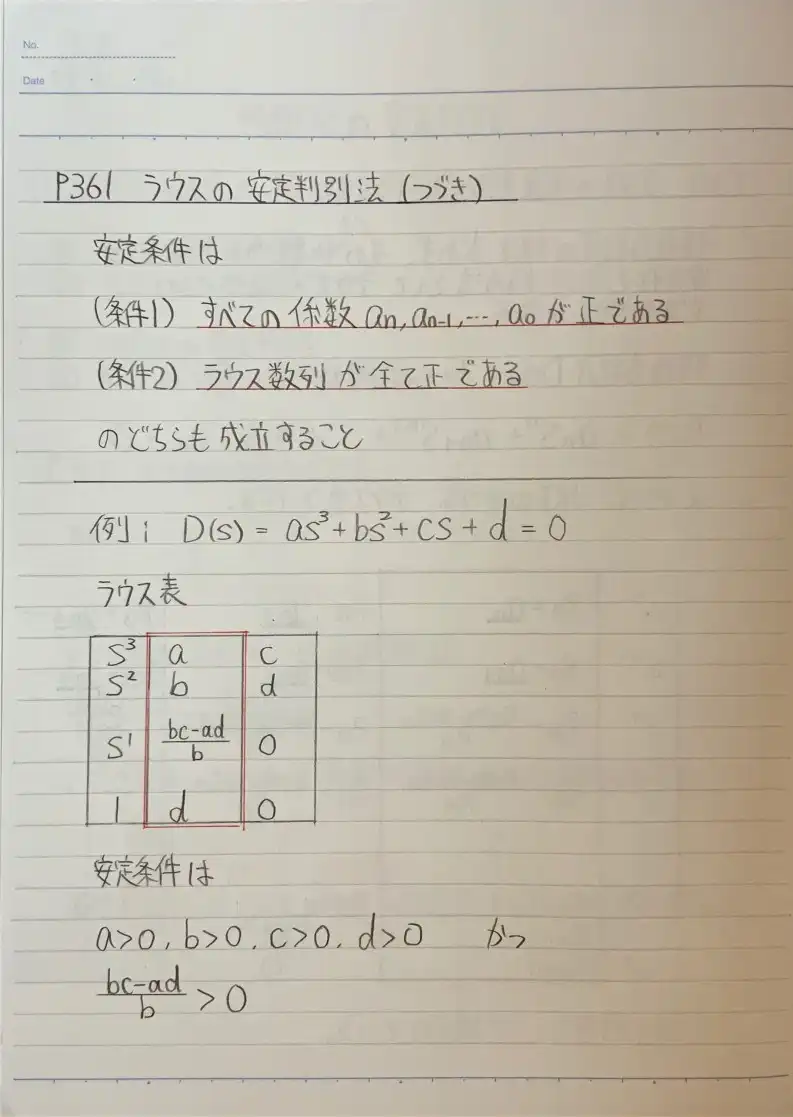 No.
Date
P361 ラウスの安定判別法(つづき)
安定条件は
(条件1) すべての係数 an, an-1, …, a0 が正である
(条件2) ラウス数列が全て正である
のどちらも成立すること
例; D(s) = as³+bs²+cs+d=0
ラウス表
S³ a c
S² b d
S¹ (bc-ad)/b 0
1 d 0
安定条件は
a>0, b>0, c>0, d>0 かつ
(bc-ad)/b > 0